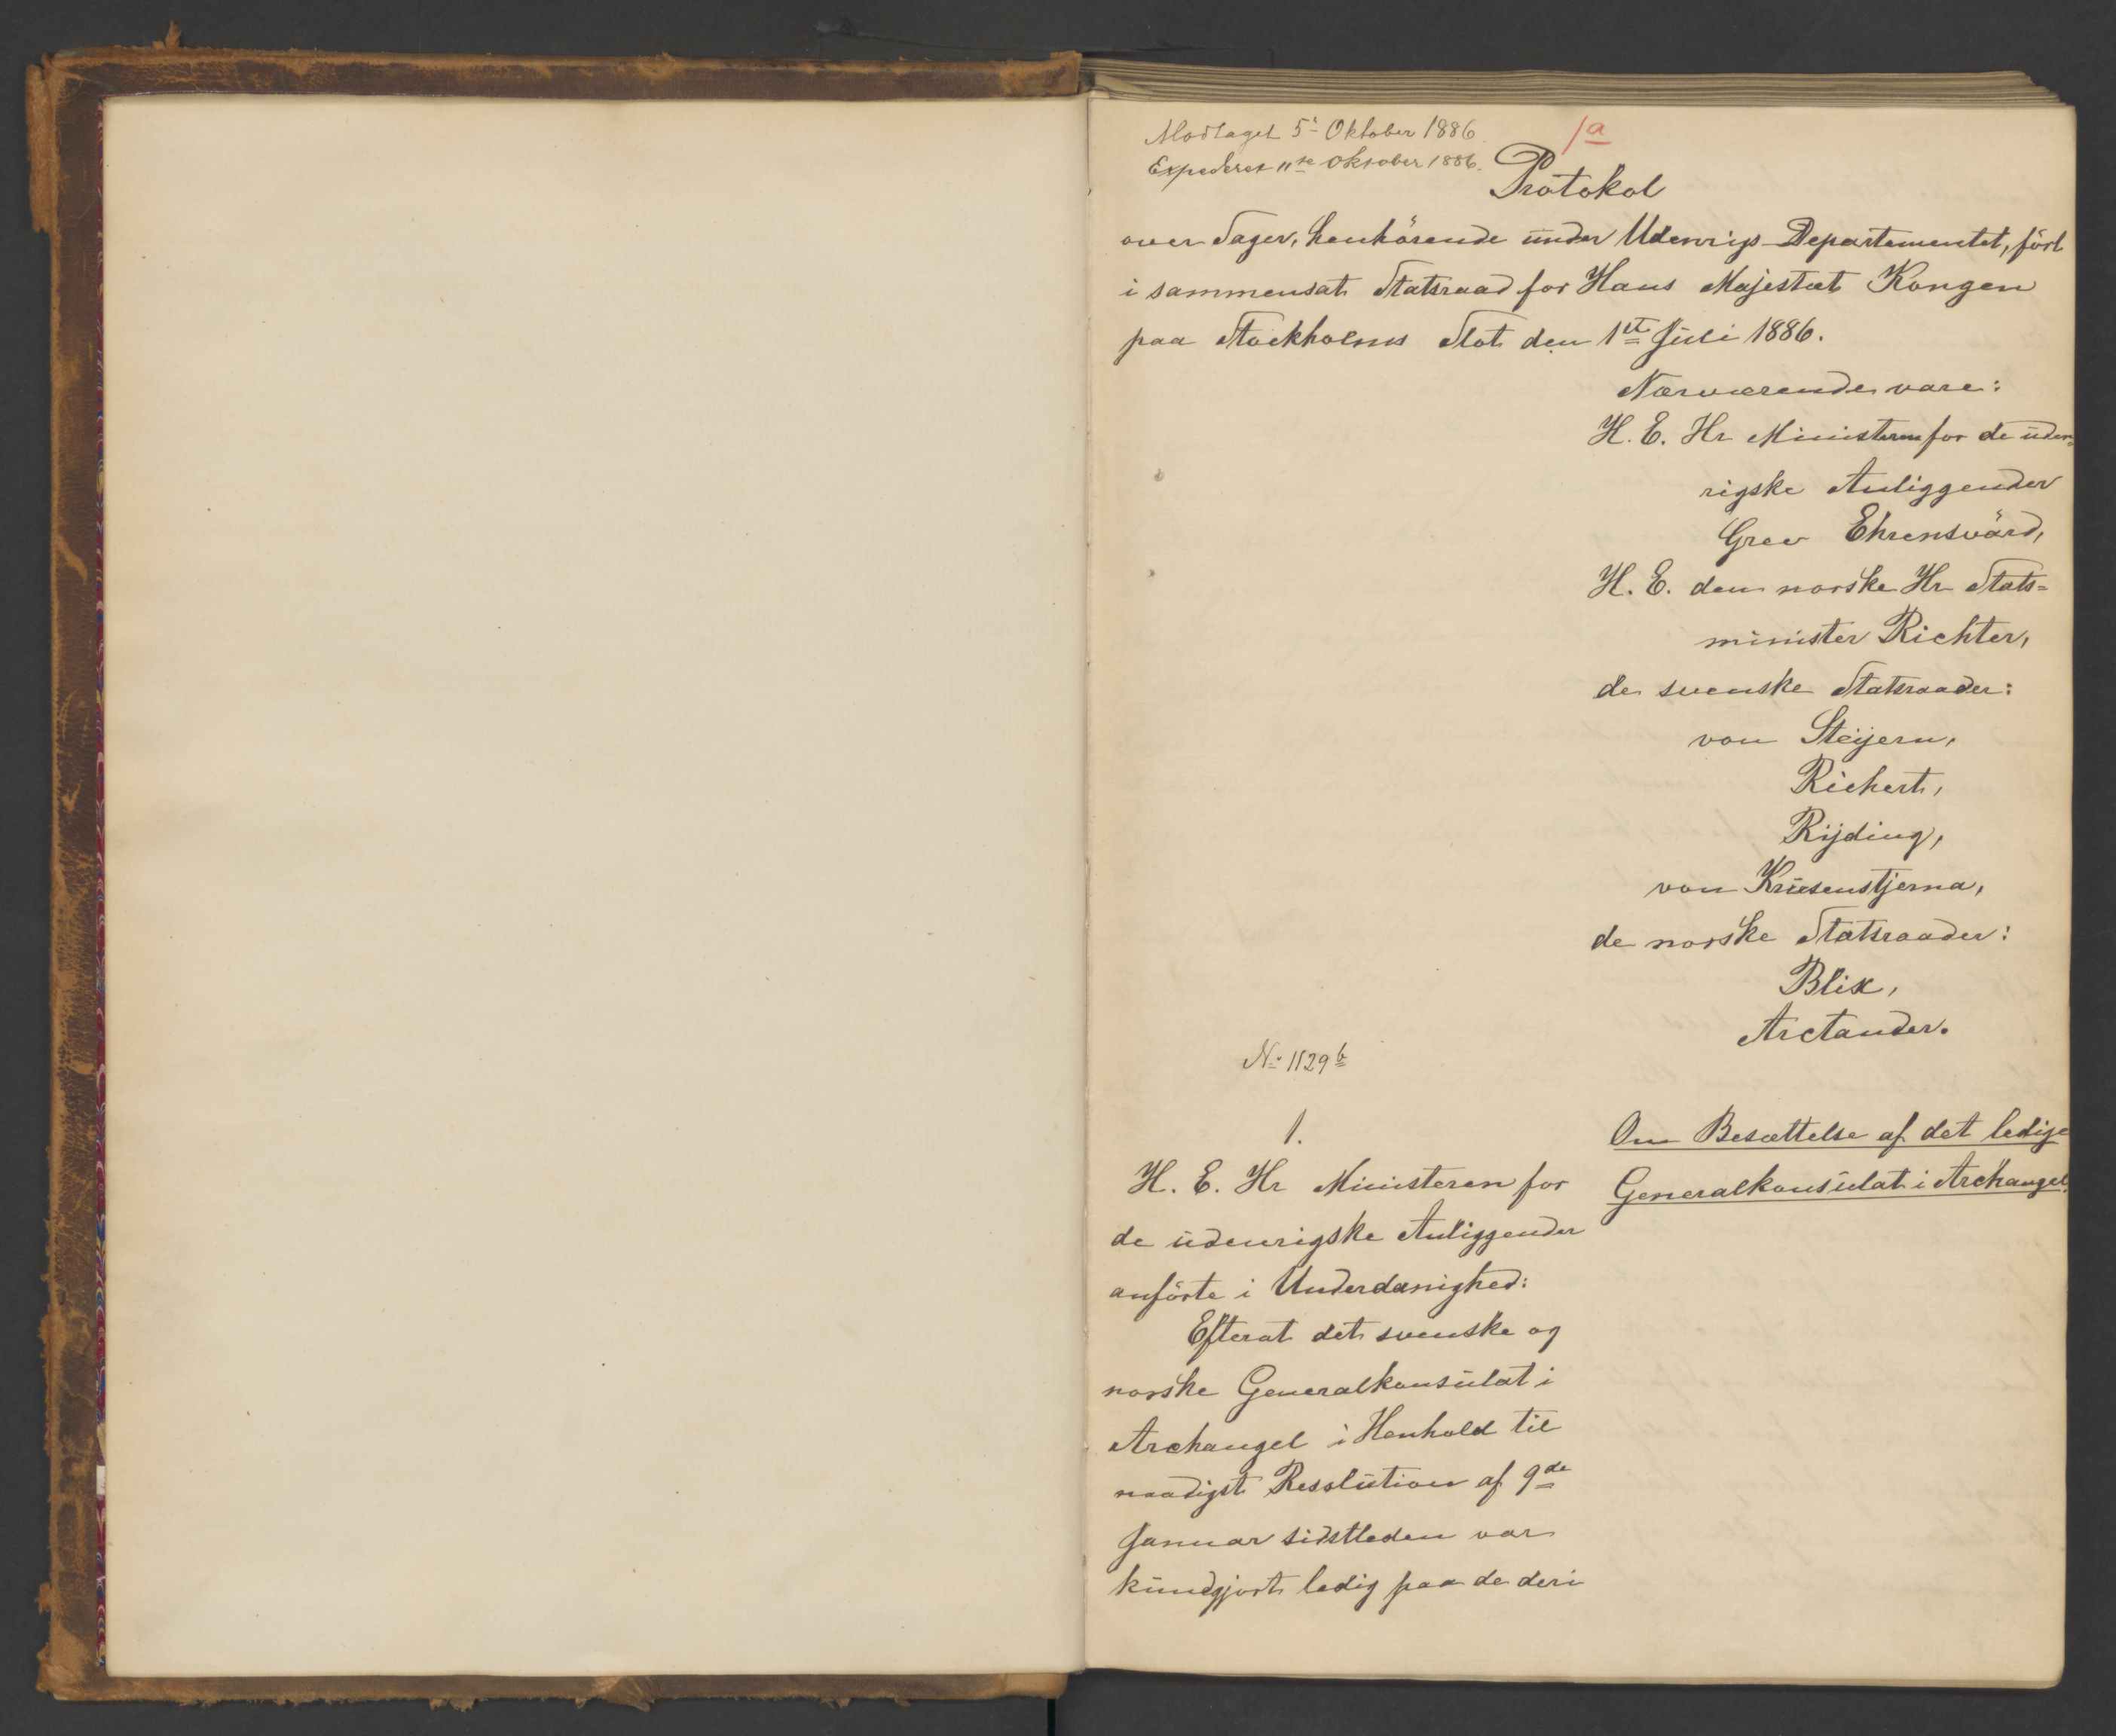 Modtaget 5te Oktober 1886.
Expederet 11te Oktober 1886.
1a
Protokol
over Sager, henhörende under Udenrigs-Departementet, fört
i sammensat Statsraad for Hans Majestæt Kongen
paa Stockholms Slot den 1ste Juli 1886.
Nærværende vare:
H. E. Hr Ministeren for de uden=
rigske Anliggender
Grev Ehrensvärd,
H. E. den norske Hr Stats=
minister Richter,
de svenske Statsraader:
von Steijern,
Richert,
Rijding,
von Krusenstjerna,
de norske Statsraader:
Blix,
Arctander.
No 1129 b
1.
Om Besættelse af det ledige
Generalkonsulat i Archangel.
H. E. Hr Ministeren for
de udenrigske Anliggender
anförte i Underdanighed:
Efterat det svenske og
norske Generalkonsulat i
Archangel i Henhold til
naadigst Resolution af 9de
Januar sidstleden var
kundgjort ledig paa de deri